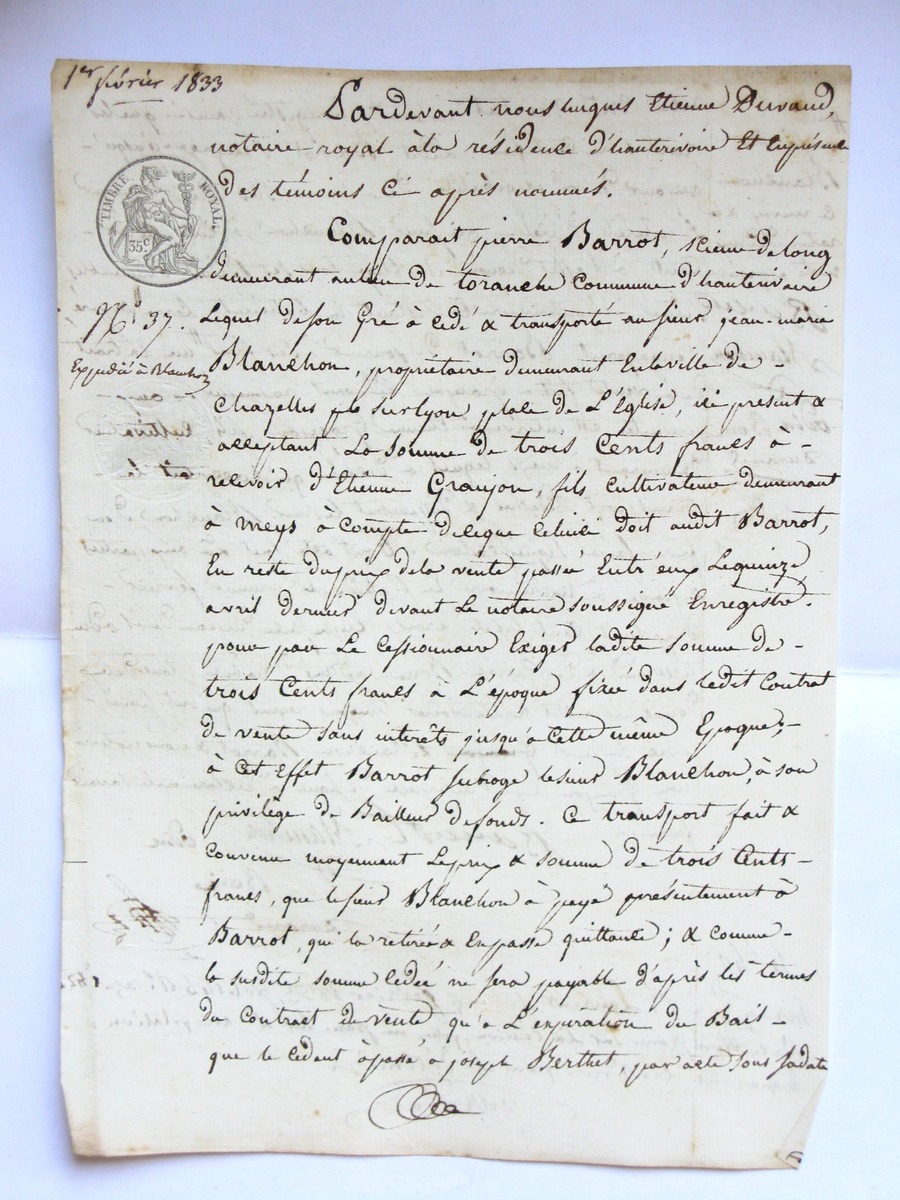 1er février 1833
Pardevant nous hugues Etienne Durand,
notaire royal à la résidence d'hauterivoire Et En présence
des témoins Ci après nommés.
TIMBRE ROYAL
35c
Comparait pierre Barrot, scieur de long
demeurant au lieu de toranche Commune d'hauterivoire
Lequel de son Gré à Cédé & transporté au sieur jean-marie
No 37.
Expédié à Blanchon
Blanchon, propriétaire demeurant En la ville de -
Chazelles sur Lyon place de L'Eglise, ici présent &
acceptant La Somme de trois Cents francs à -
recevoir d'Etienne Granjon, fils Cultivateur demeurant
à meys à Compte de ce que Celui ci doit audit Barrot,
En reste du prix de la vente passée Entr'eux Le quinze
avril dernier devant Le notaire soussigné Enregistré.
pour par Le Cessionnaire Exiger ladite somme de -
trois Cents francs à L'époque fixée dans ledit Contrat
de vente sans intérêts jusqu'a Cette même Epoque; -
à Cet Effet Barrot subroge le sieur Blanchon, à son
privilège de Bailleur de fonds. Ce transport fait &
Convenu moyennant Le prix & somme de trois Cents -
francs, que le sieur Blanchon à payé présentement à
Barrot, qui la retirée & En passe quittance; & Comme -
la susdite somme Cédée ne sera payable d'après les termes
du Contract de vente qu'a L'expiration du Bail -
que le Cédent à passé à joseph Berthet, par acte sous sa date